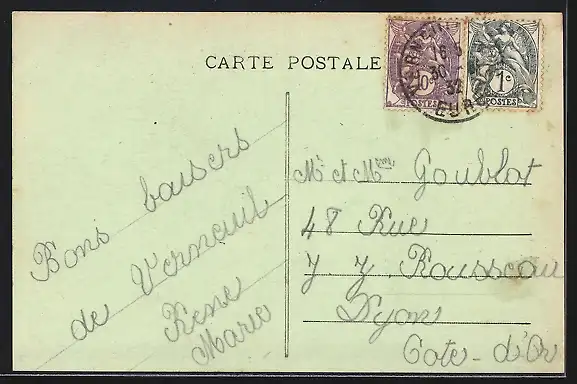 CARTE POSTALE
10c
POSTES
1c
POSTES
EURE
Bons baisers
de Verneuil
Rene
Marie
Mr et Mme Goublot
48 Rue
J J Rousseau
Dijon
Cote-d'Or